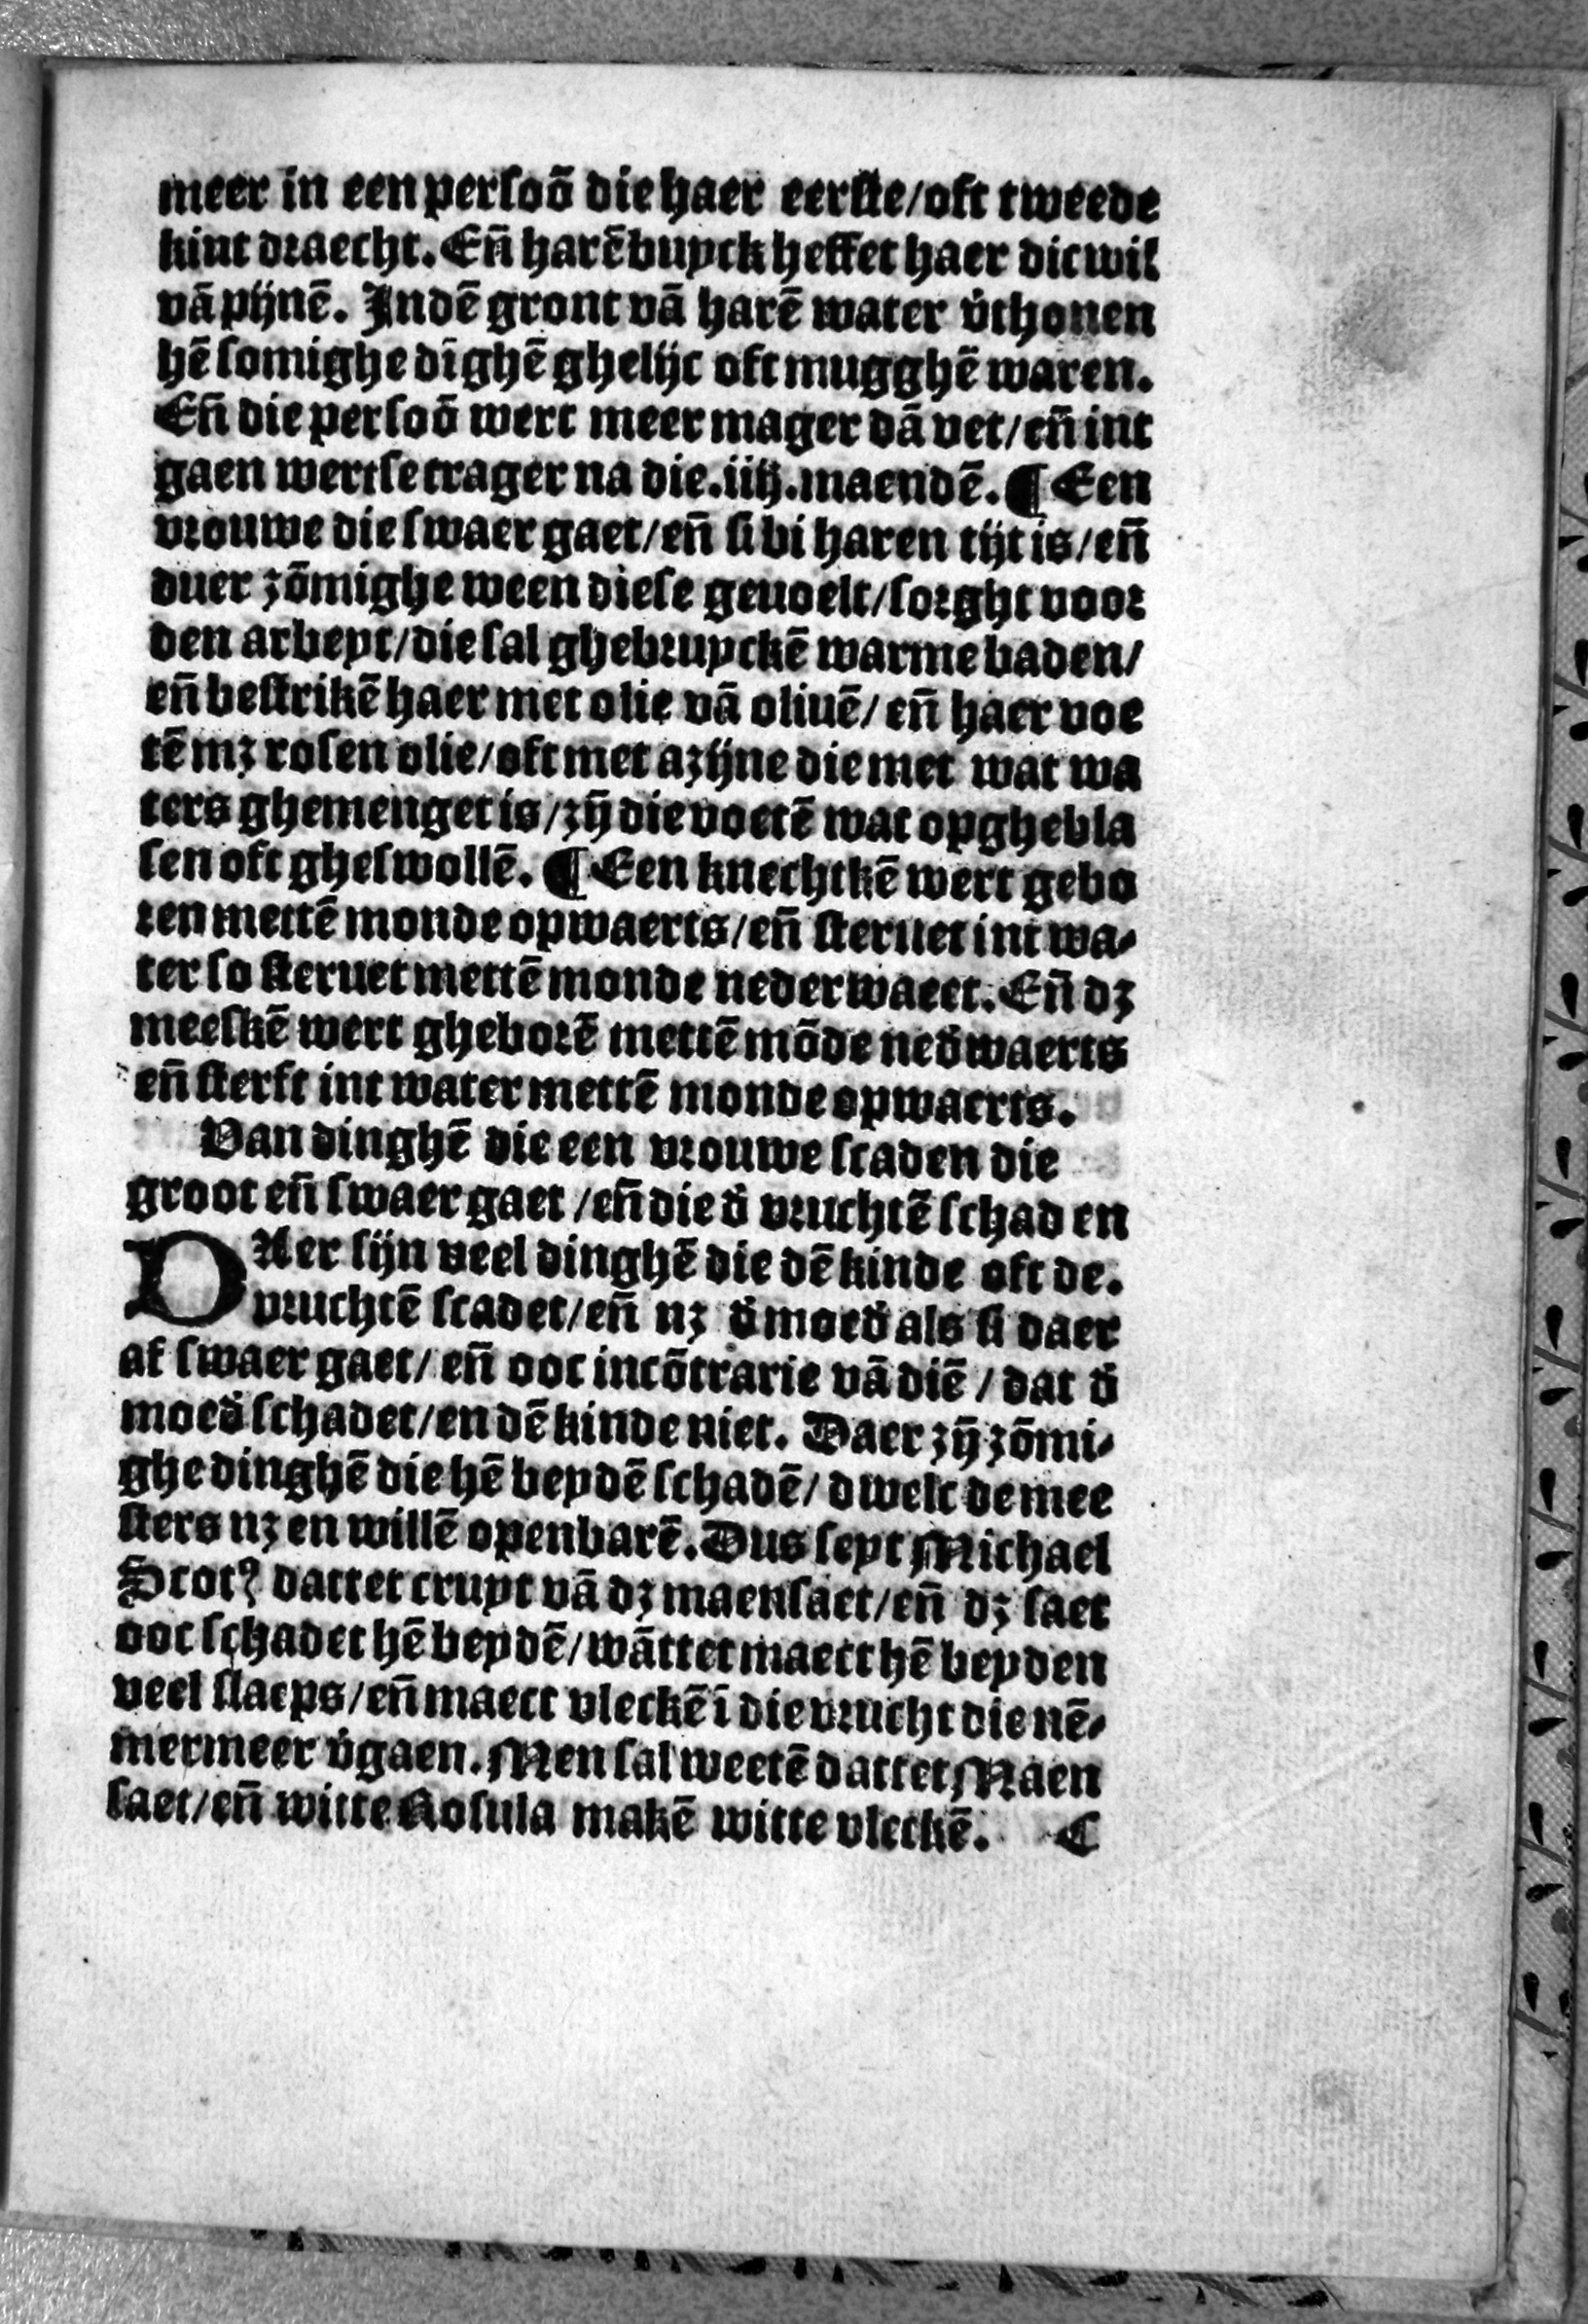 meer in een persoō die haer eerste/oft tweede
kint draecht. Eñ harē buyck heffet haer dicwil
vā pijnē. In dē gront vā harē water v̄thonen
hē somighe dīghē ghelijc oft mugghē waren.
Eñ die persoō wert meer mager dā vet/eñ int
gaen wert se trager na die .iiij. maendē. ¶ Een
vrouwe die swaer gaet/eñ si bi haren tijt is/eñ
duer zōmighe ween diese geuoelt/sorght voor
den arbeyt/die sal ghebruyckē warme baden/
eñ bestrikē haer met olie vā oliuē/eñ haer voe
tē mz rosen olie/oft met azijne die met wat wa
ters ghemenget is/zȳ die voetē wat opghebla
sen oft gheswollē. ¶ Een knechtkē wert gebo
ren mettē monde opwaerts/eñ steruet int wa-
ter so steruet mettē monde nederwaert. Eñ dz
meeskē wert gheborē mettē mōde ned̄waerts
eñ sterft int water mettē monde opwaerts.
Van dinghē die een vrouwe scaden die
groot eñ swaer gaet/eñ die d̄ vruchtē schaden
DAer sijn veel dinghē die dē kinde oft de.
vruchtē scadet/eñ nz d̄ moed̄ als si daer
af swaer gaet/eñ ooc incōtrarie vā diē/dat d̄
moed̄ schadet/en dē kinde niet. Daer zȳ zōmi-
ghe dinghē die hē beydē schadē/dwelc de mee
sters nz en willē openbarē. Dus seyt Michael
Scotꝰ dattet cruyt vā dz maensaet/eñ dz saet
ooc schadet hē beydē/wāttet maect hē beyden
veel slaeps/eñ maect vleckē ī die vrucht die nē-
mermeer v̄gaen. Men sal weetē dattet Maen
saet/eñ witte Rosula makē witte vleckē. ¶